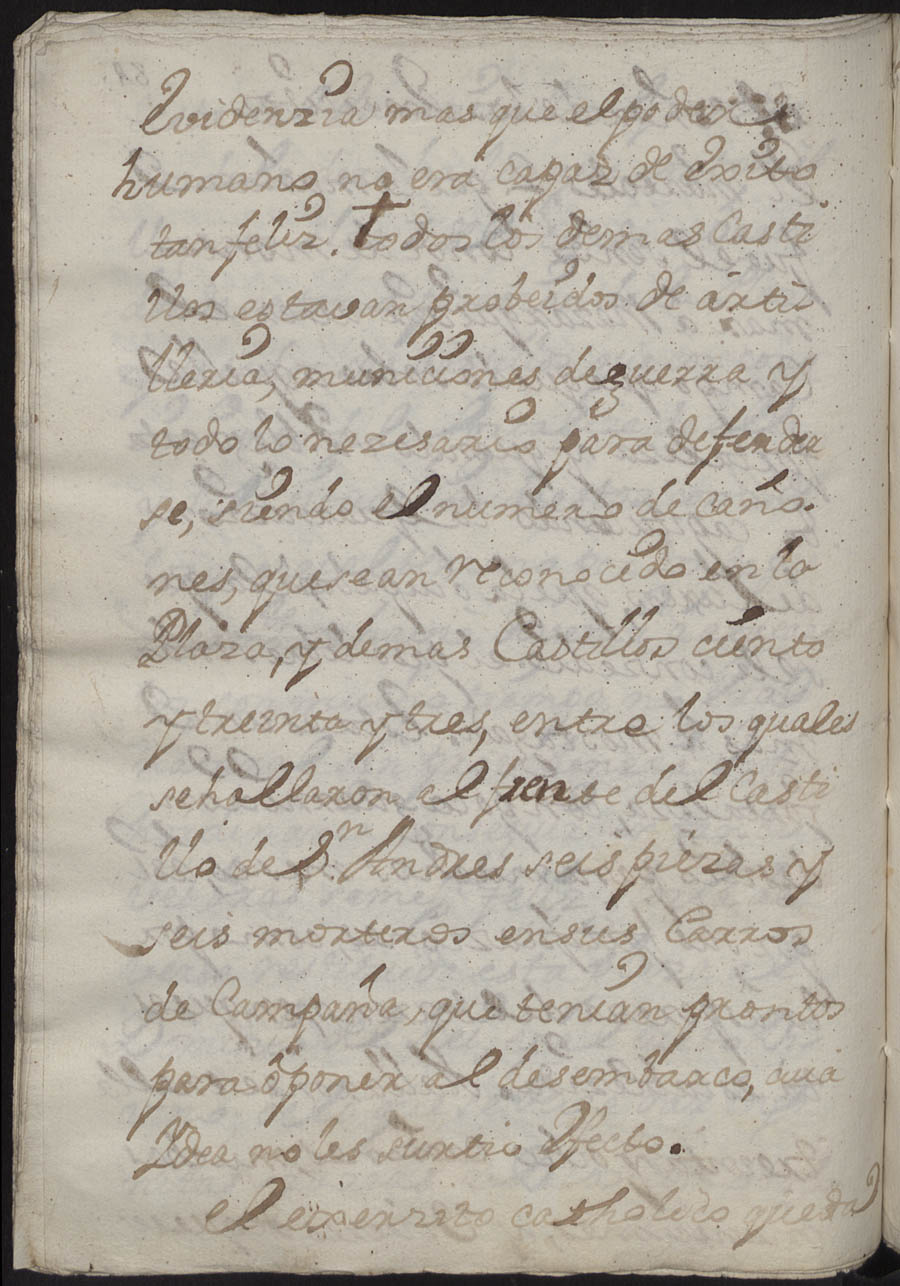 Evidenzia mas que el poder
humano no era capaz de Exito
tan feliz. todos los demas Casti
llos estavan probeidos de arti
lleria, municiones de guerra y
todo lo nezesario para defender
se, siendo el numero de caño-
nes, que sean reconocido en la
Plaza, y demas Castillos ciento
y treinta y tres, entre los quales
se hallaron al frente del Casti
llo de Sn Andres seis piezas y
seis morteros en sus Carros
de Campaña, que tenian prontos
para oponer al desembarco, cuia
Ydea no les surtio Efecto.
el exerzito catholico queda